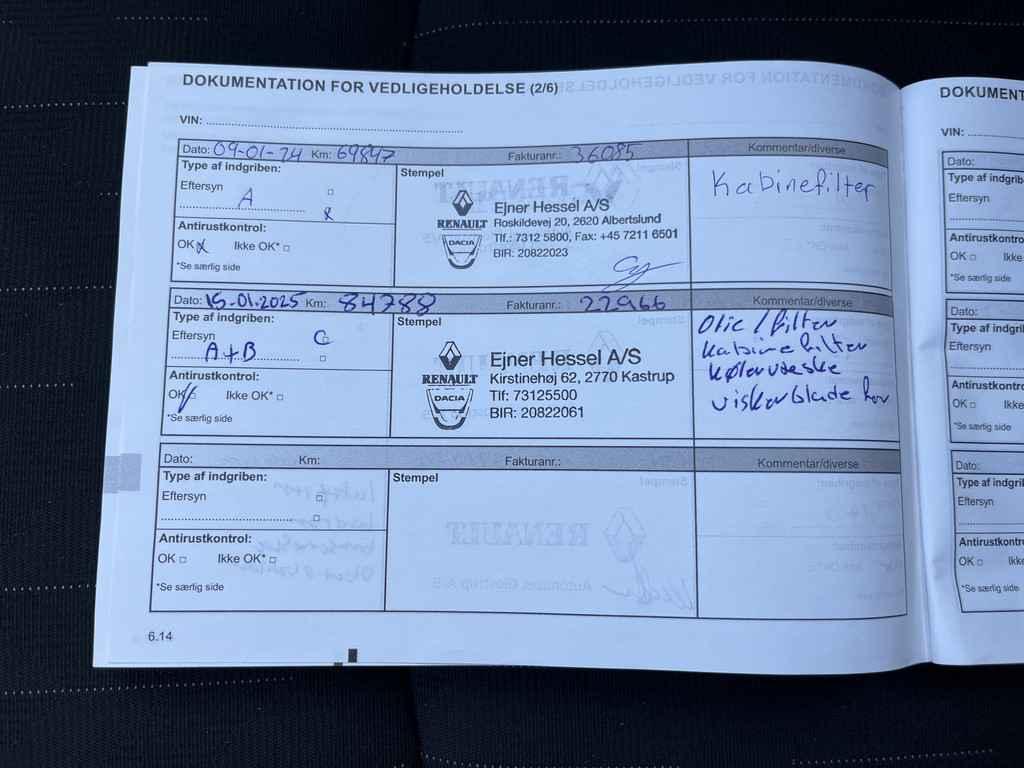 DOKUMENTATION FOR VEDLIGEHOLDELSE (2/6)
VIN:
Dato: 09-01-24 Km: 69847 Fakturanr.: 36085 Kommentar/diverse
Type af indgriben:
Eftersyn
A
Antirustkontrol:
OK Ikke OK*
*Se særlig side
Stempel
RENAULT
DACIA
Ejner Hessel A/S
Roskildevej 20, 2620 Albertslund
Tlf.: 7312 5800, Fax: +45 7211 6501
BIR: 20822023
Kabinefilter
Dato: 15-01.2025 Km: 84788 Fakturanr.: 22966 Kommentar/diverse
Type af indgriben:
Eftersyn
A+B
Antirustkontrol:
OK Ikke OK*
*Se særlig side
Stempel
RENAULT
DACIA
Ejner Hessel A/S
Kirstinehøj 62, 2770 Kastrup
Tlf: 73125500
BIR: 20822061
Olie / filter
kabinefilter
kølervæske
viskerblade
Dato: Km: Fakturanr.: Kommentar/diverse
Type af indgriben:
Eftersyn
Antirustkontrol:
OK Ikke OK*
*Se særlig side
Stempel
6.14
DOKUMENT
VIN:
Dato:
Type af indgrib
Eftersyn
Antirustkontro
OK Ikke
*Se særlig side
Dato:
Type af indgrib
Eftersyn
Antirustkontro
OK Ikke
*Se særlig side
Dato:
Type af indgrib
Eftersyn
Antirustkontro
OK Ikke
*Se særlig side